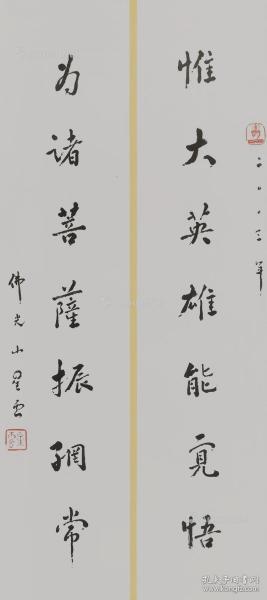 二〇〇三年
惟大英雄能覺悟
为诸菩薩振綱常
佛光山星雲
孔夫子旧书网